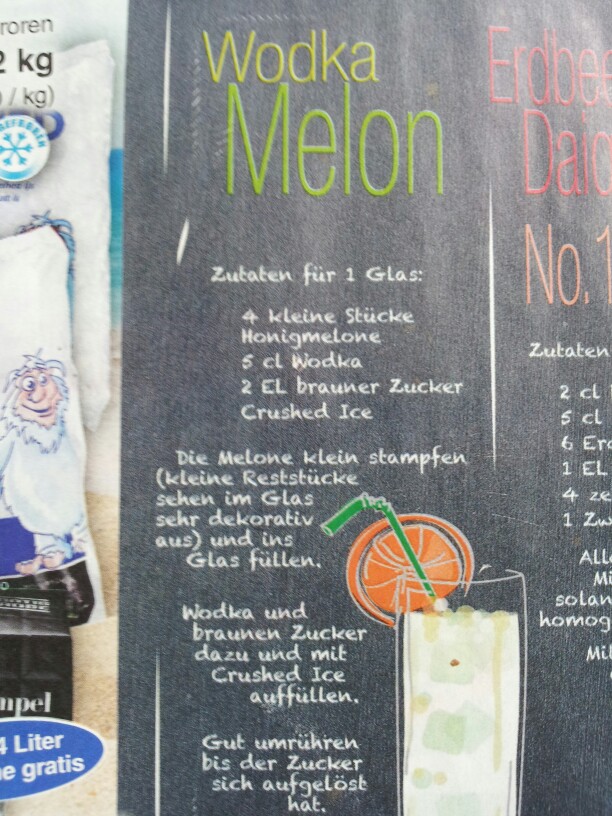 roren
2 kg
/ kg)
Wodka
Melon
Zutaten für 1 Glas:
4 kleine Stücke
Honigmelone
5 cl Wodka
2 EL brauner Zucker
Crushed Ice
Die Melone klein stampfen
(kleine Reststücke
sehen im Glas
sehr dekorativ
aus) und ins
Glas füllen.
Wodka und
braunen Zucker
dazu und mit
Crushed Ice
auffüllen.
Gut umrühren
bis der Zucker
sich aufgelöst
hat.
Erdbee
Daic
No. 1
Zutaten
2 cl
5 cl
6 Erd
1 EL
4 ze
1 Zw
Alle
Mi
solan
homog
Mil
mpel
4 Liter
ne gratis